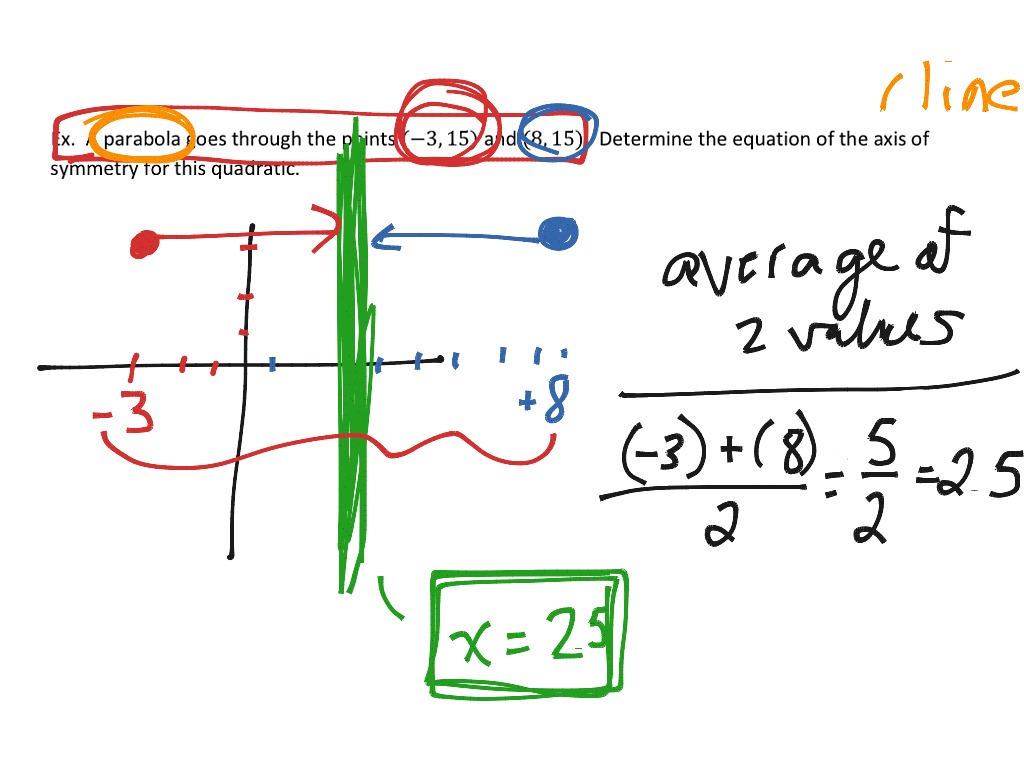 line
Ex. A parabola goes through the points (−3, 15) and (8, 15). Determine the equation of the axis of
symmetry for this quadratic.
average of
2 values
-3
+8
(-3) + (8)
2
= 5
2
= 2.5
x = 2.5